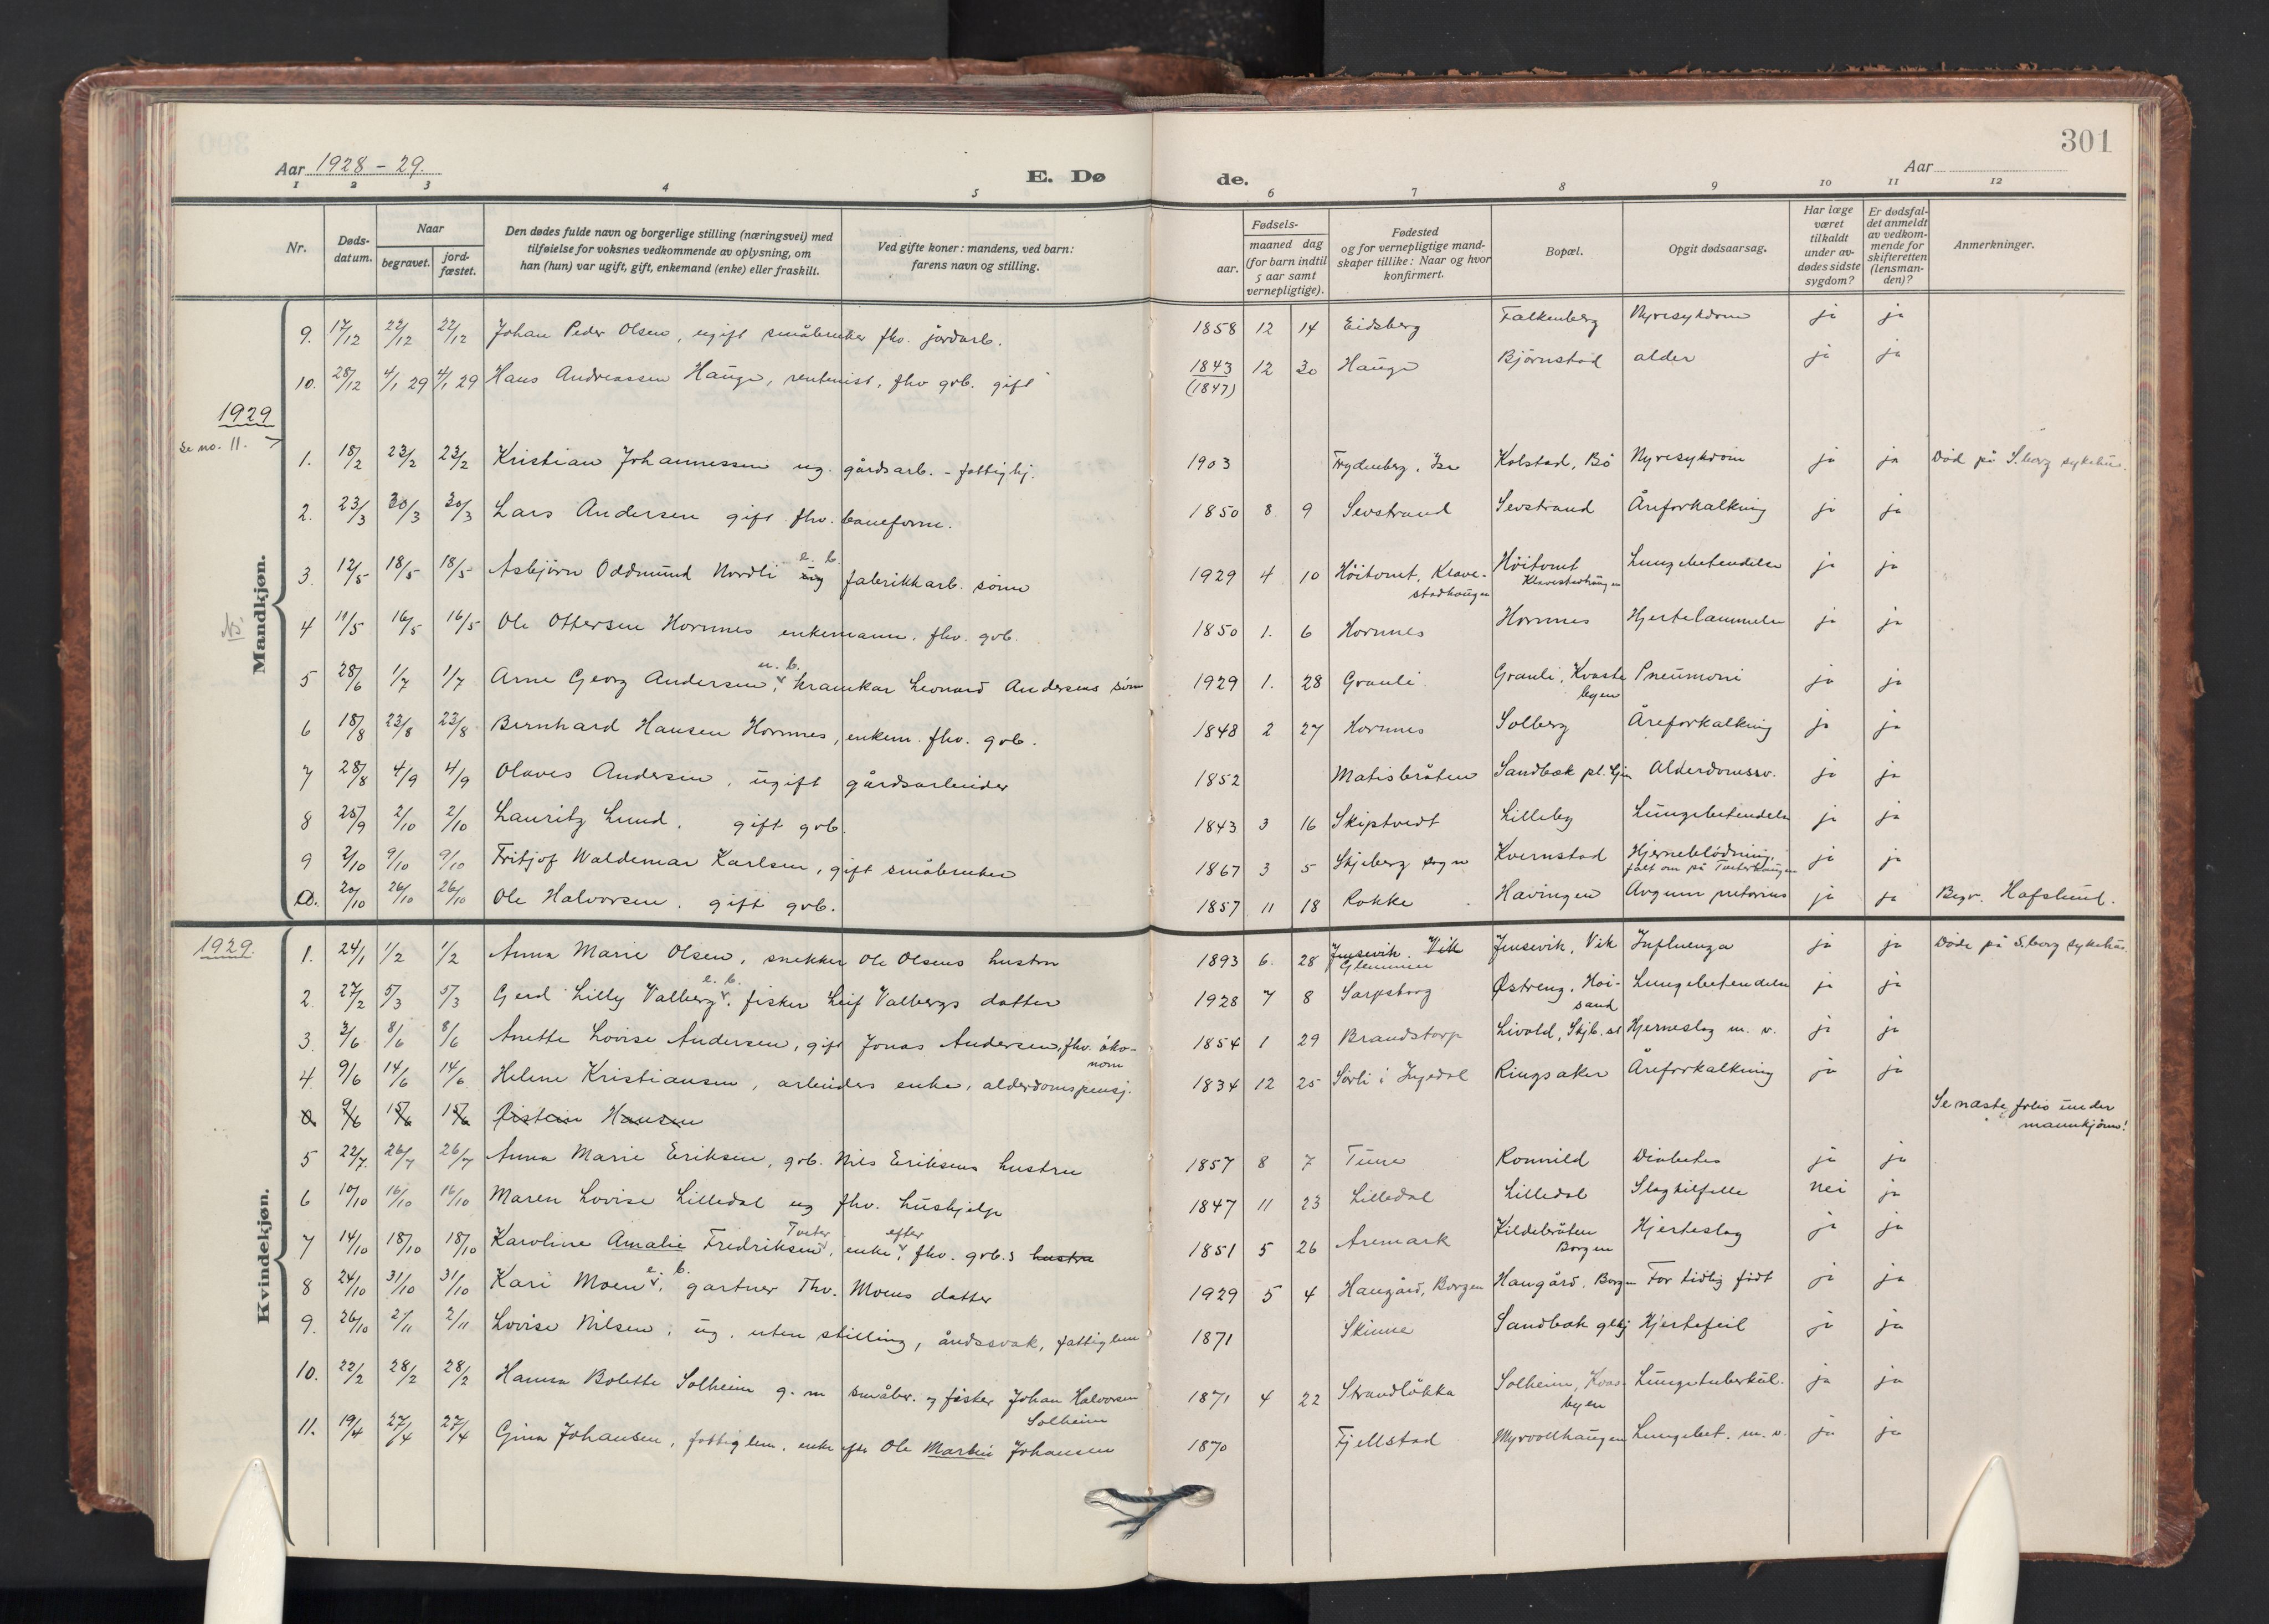 301
Aar 1928 - 29.
E. Dø
de.
Aar
1 2 3 4 5 6 7 8 9 10 11 12
Nr.
Døds-
datum.
Naar
begravet.
jord-
fæstet.
Den dødes fulde navn og borgerlige stilling (næringsvei) med
tilføielse for voksnes vedkommende av oplysning, om
han (hun) var ugift, gift, enkemand (enke) eller fraskilt.
Ved gifte koner: mandens, ved barn:
farens navn og stilling.
Fødsels-
aar.
maaned dag
(for barn indtil
5 aar samt
vernepligtige).
Fødested
og for vernepligtige mand-
skaper tillike: Naar og hvor
konfirmert.
Bopæl.
Opgit dødsaarsag.
Har læge
været
tilkaldt
under av-
dødes sidste
sygdom?
Er dødsfal-
det anmeldt
av vedkom-
mende for
skifteretten
(lensman-
den)?
Anmerkninger.
Mandkjøn.
9. 17/12 22/12 22/12 Johan Peder Olsen, ugift småbruker fhv. jordarb. 1858 12 14 Eidsberg Falkenberg Nyresykdom ja ja
10. 28/12 4/1 29 4/1 29 Hans Andreassen Hauge, rentenist, fhv gvb. gift 1843 (1847) 12 30 Hauge Bjørnstad alder ja ja
1929
Se no. 11. →
1. 18/2 23/2 23/2 Kristian Johannessen ug. gårdsarb. - fattighj. 1903 Frydenberg, Ise Kolstad, Bø Nyresykdom ja ja Död på S.borg sykehus.
2. 23/3 30/3 30/3 Lars Andersen gift fhv. baneform. 1850 8 9 Sevstrand Sevstrand Åreforkalkning ja ja
3. 12/5 18/5 18/5 Asbjørn Oddmund Nordli ug e. b. fabrikkarb. sønn 1929 4 10 Höitomt, Klave-stadhaugen Höitomt Klavestadhaugen Lungebetendelse ja ja
4 11/5 16/5 16/5 Ole Ottersen Hornnes enkemann, fhv. gvb. 1850 1. 6 Hornnes Hornnes Hjertelammelse ja ja
5 28/6 1/7 1/7 Arne Georg Andersen, e. b. krankar Leonard Andersens sönn 1929 1. 28 Granli. Granli, Kvaste byen Pneumoni ja ja
6 18/8 23/8 23/8 Bernhard Hansen Hornnes, enkem. fhv. gvb. 1848 2 27 Hornnes Solberg Åreforkalkning ja ja
7 28/8 4/9 4/9 Olaves Andersen, ugift gårdsarbeider 1852 Matisbråten Sandbæk pl.hjm Alderdomssv. ja ja
8 25/9 2/10 2/10 Lauritz Lund. gift gvb. 1843 3 16 Skiptvedt Lilleby Lungebetendelse ja ja
9 2/10 9/10 9/10 Fritjof Waldemar Karlsen, gift småbruker 1867 3 5 Skjeberg sogn Kvernstad Hjerneblödning, falt om på Tveterhaugen ja ja
10. 20/10 26/10 26/10 Ole Halvorsen. gift gvb. 1857 11 18 Rokke Havingen ja ja Begr. Hafslund.
Kvindekjøn.
1929.
1. 24/1 1/2 1/2 Anna Marie Olsen, snekker Ole Olsens hustru 1893 6. 28 Jensevik. Vik Glemmen Jensevik, Vik Influenza ja ja Döde på S.borg sykehus.
2. 27/2 5/3 5/3 Gerd Lilly Valberg, e. b. fisker Leif Valbergs datter 1928 7 8 Sarpsborg Østreng, Höi-sand Lungebetendelse ja ja
3. 3/6 8/6 8/6 Anette Lovise Andersen, gift Jonas Andersen, fhv. öko-nom 1854 1 29 Brandstorp Livold, Skjb. st Hjerneslag m. v. ja ja
4. 9/6 14/6 14/6 Helene Kristiansen, arbeiders enke, alderdomspensj. 1834 12 25 Sørli i Ingedal Ringsaker Åreforkalkning ja ja
9/6 15/6 15/6 Øistein Hansen Se næste folio under mannkjønn!
5 22/7. 26/7 26/7 Anna Marie Eriksen, gvb. Nils Eriksens hustru 1857 8 7 Tune Romnild Diabetes ja ja
6 10/10 16/10 16/10 Maren Lovise Lilledal ug fhv. hushjelp 1847 11 23 Lilledal Lilledal Slagtilfelle nei ja
7 14/10 18/10 18/10 Karoline Amalie Fredriksen Tveter, enke efter, fhv. gvb.s hustru 1851 5 26 Aremark Kildebråten Borgen Hjerteslag ja ja
8 24/10 31/10 31/10 Kari Moen, e. b. gartner Thv. Moens datter 1929 5 4 Haugård, Borgen Haugård, Borgen For tidlig födt ja ja
9. 26/10 2/11 2/11 Lovise Nilsen, ug. uten stilling, åndssvak, fattiglem 1871 Skinne Sandbæk glhj Hjertefeil ja ja
10. 22/2 28/2 28/2 Hanna Bolette Solheim g. m småbr. og fisker Johan Halvorsen Solheim 1871 4 22 Strandlökka Solheim, Kvas-byen Lungetuberkul. ja ja
11. 19/4 27/4 27/4 Gina Johansen, fattiglem, enke efter Ole Martin Johansen 1870 Fjellstad Myrvollhaugen Lungebet. m. v. ja ja